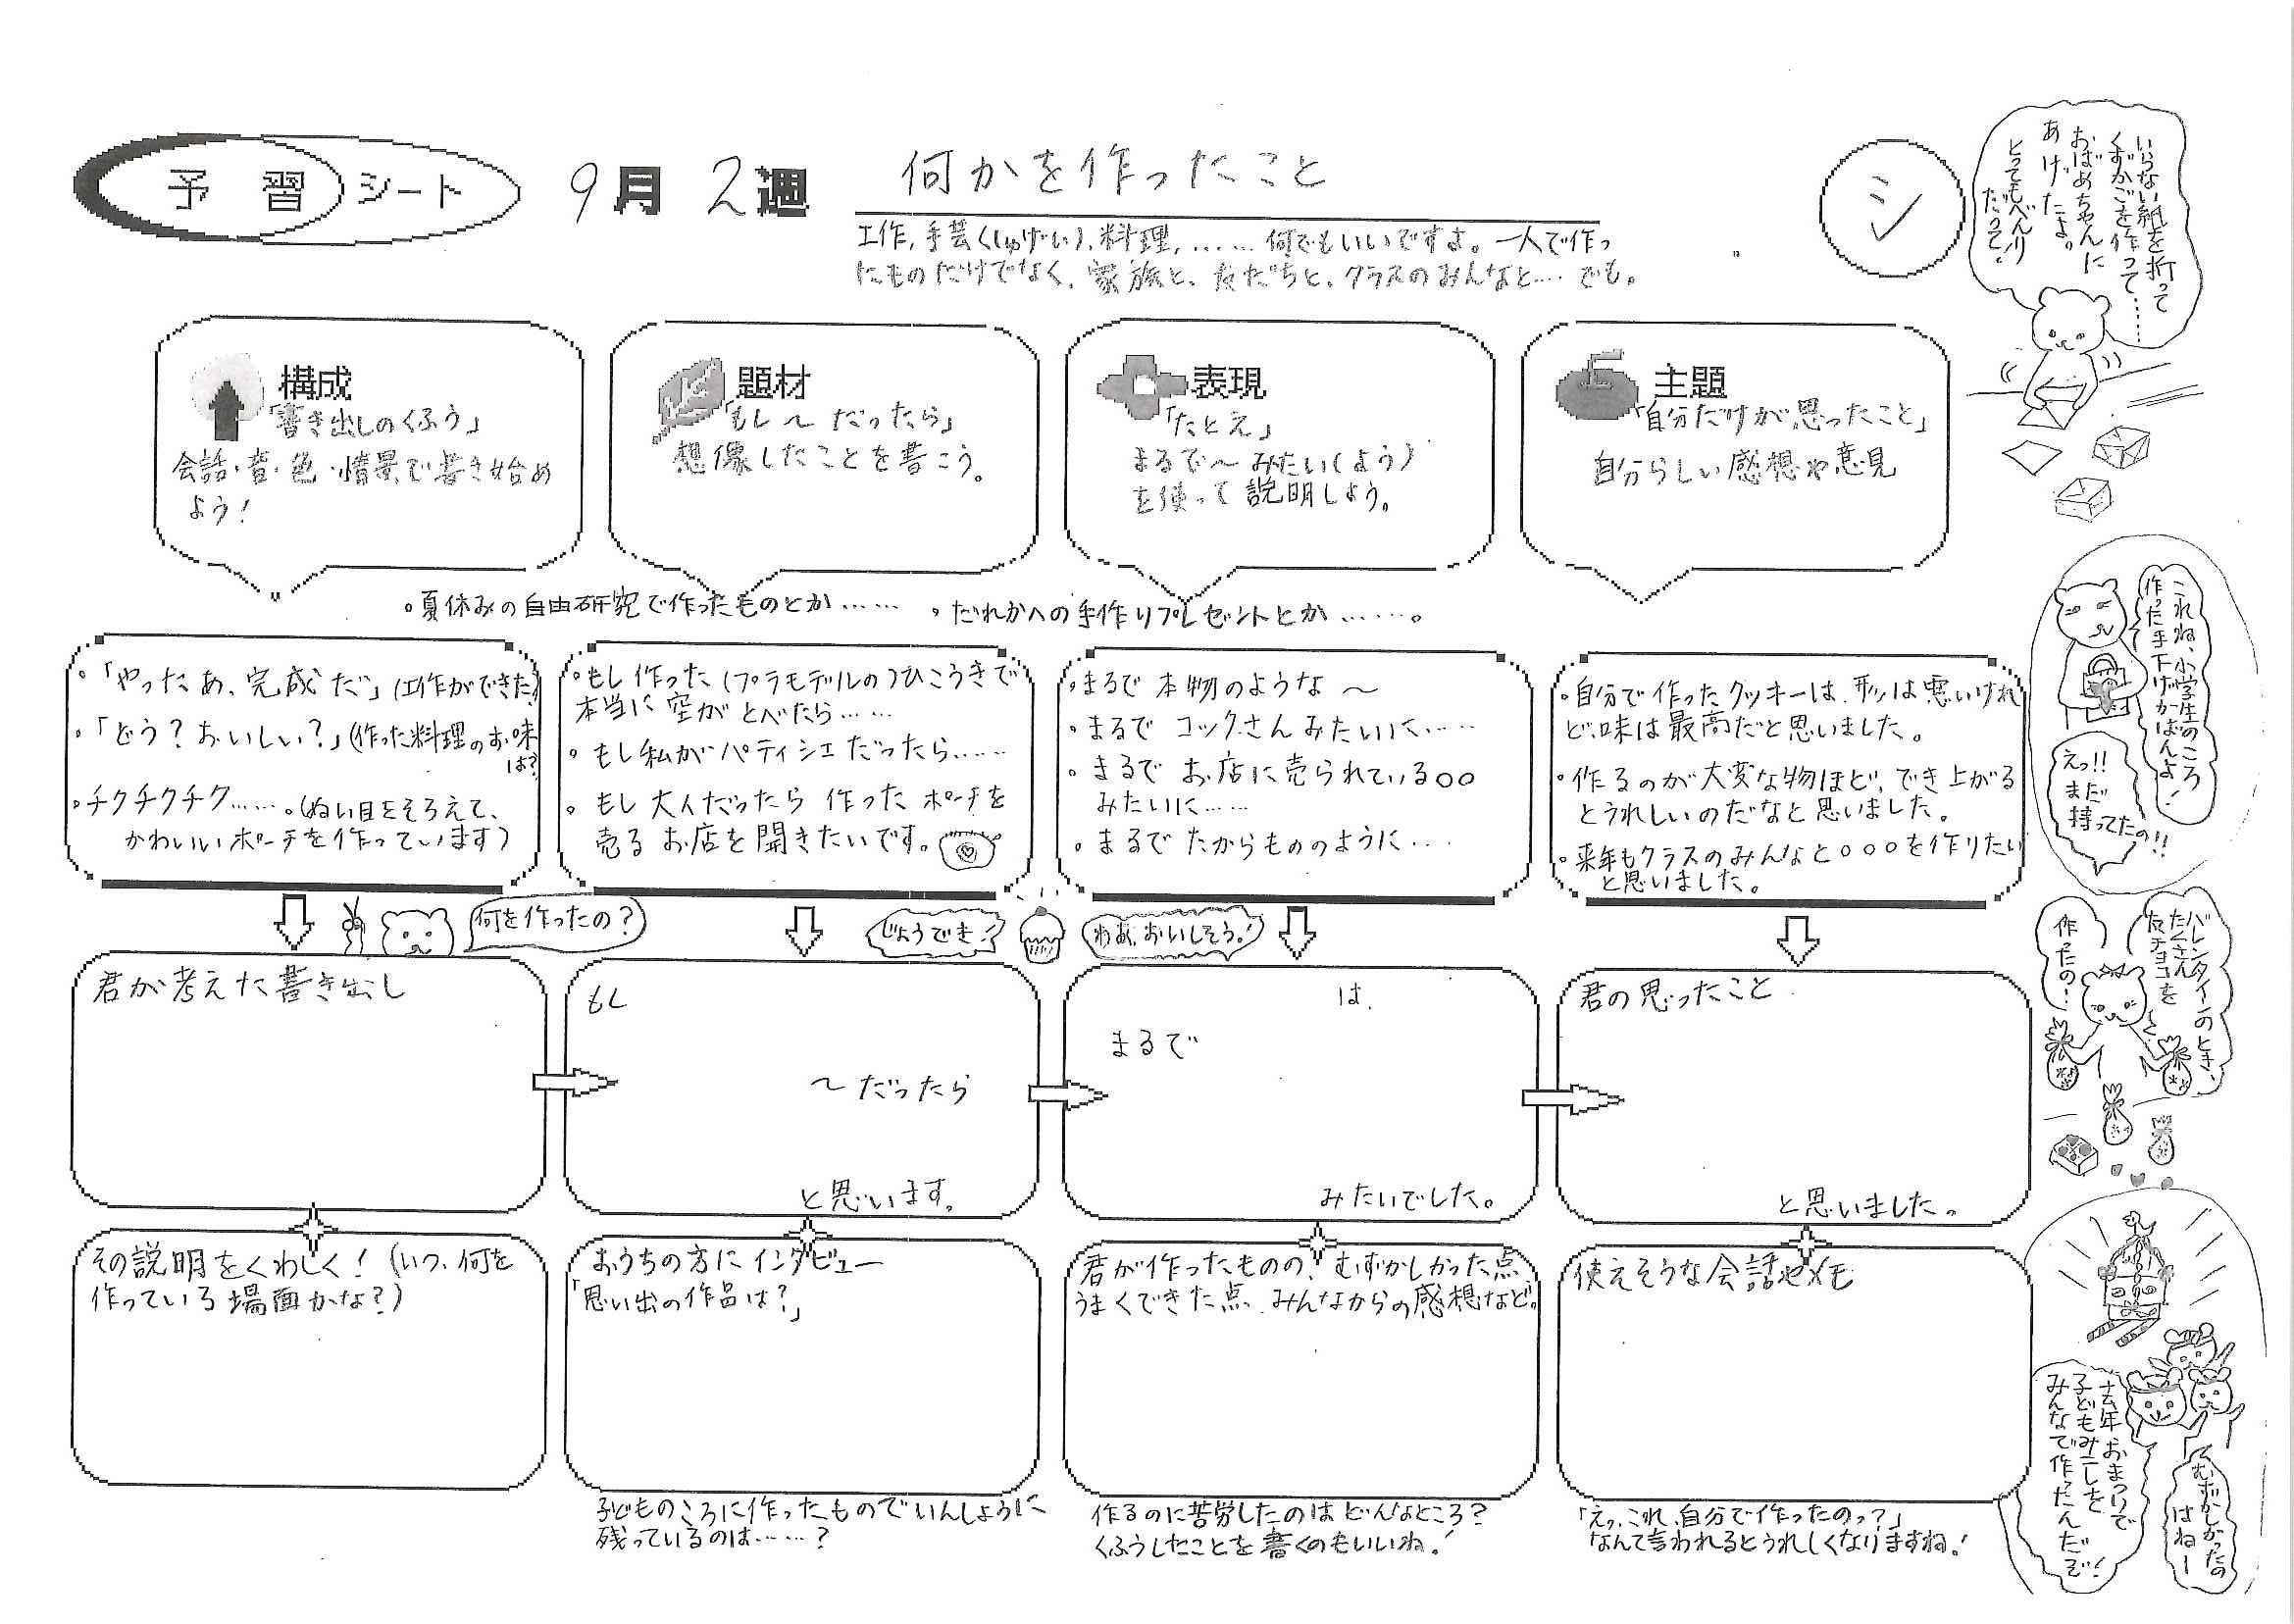 予習シート
9月 2週
何かを作ったこと
シ
工作,手芸(しゅげい),料理,……何でもいいですよ。一人で作っ
たものだけでなく、家族と、友だちと、クラスのみんなと…でも。
構成
「書き出しのくふう」
会話・音・色・情景で書き始め
よう!
題材
「もし〜だったら」
想像したことを書こう。
表現
「たとえ」
まるで〜みたい(よう)
を使って説明しよう。
主題
「自分だけが思ったこと」
自分らしい感想や意見
。夏休みの自由研究で作ったものとか……
。だれかへの手作りプレゼントとか……。
・「やったあ、完成だ」(工作ができた)
・「どう?おいしい?」(作った料理のお味
は?
・チクチクチク……。(ぬい目をそろえて、
かわいいポーチを作っています)
・もし作った(プラモデルの)ひこうきで
本当に空がとべたら……
・もし私がパティシエだったら……
。もし大人だったら作ったポーチを
売るお店を開きたいです。
・まるで本物のような〜
・まるでコックさんみたいに……
・まるでお店に売られている○○
みたいに……
・まるでたからもののように…
・自分で作ったクッキーは、形は悪いけれ
ど、味は最高だと思いました。
・作るのが大変な物ほど、でき上がる
とうれしいのだなと思いました。
・来年もクラスのみんなと○○○を作りたい
と思いました。
何を作ったの?
じょうでき!
わあ、おいしそう!
君が考えた書き出し
もし
〜だったら
と思います。
は、
まるで
みたいでした。
君の思ったこと
と思いました。
その説明をくわしく!(いつ、何を
作っている場面かな?)
おうちの方にインタビュー
「思い出の作品は?」
君が作ったものの、むずかしかった点
うまくできた点、みんなからの感想など。
使えそうな会話やメモ
子どものころに作ったものでいんしょうに
残っているのは……?
作るのに苦労したのはどんなところ?
くふうしたことを書くのもいいね!
「えっ、これ、自分で作ったのっ?」
なんて言われるとうれしくなりますね!
いらない紙を折って
くずかごを作って……
おばあちゃんに
あげたよ。
とってもべんり
だって!
これね、小学生のころ
作った手下げかばんよ!
えっ!!
まだ
持ってたの!!
バレンタインのとき、
たくさん
友チョコを
作ったの!
去年おまつりで
子どもみこしを
みんなで作ったんだぞ!
むずかしかったの
はねー